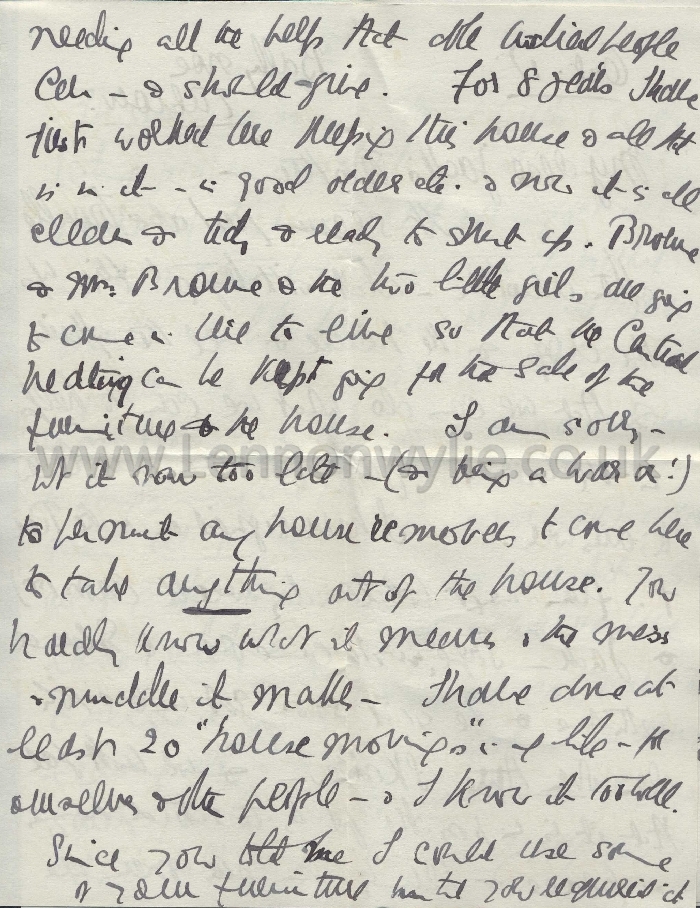 needing all the help that other medical people
can - & should - give. For 8 years I have
just worked here keeping this house & all that
is in it - in good order etc. & now it is all
clean & tidy & ready to shut up. Browne
& Mrs. Browne & the two little girls are going
to come in here to live so that the Central
heating can be kept going for the sake of the
furniture & the house. I am sorry -
but it now too late - (& being a war on!)
to permit any house removers to come here
to take anything out of the house. You
hardly know what it means & the mess
& muddle it makes - I have done at
least 20 "house movings" in my life - for
ourselves & other people - & I know it too well.
Since you told me I could use some
of your furniture until you required it
www.Lennonwylie.co.uk